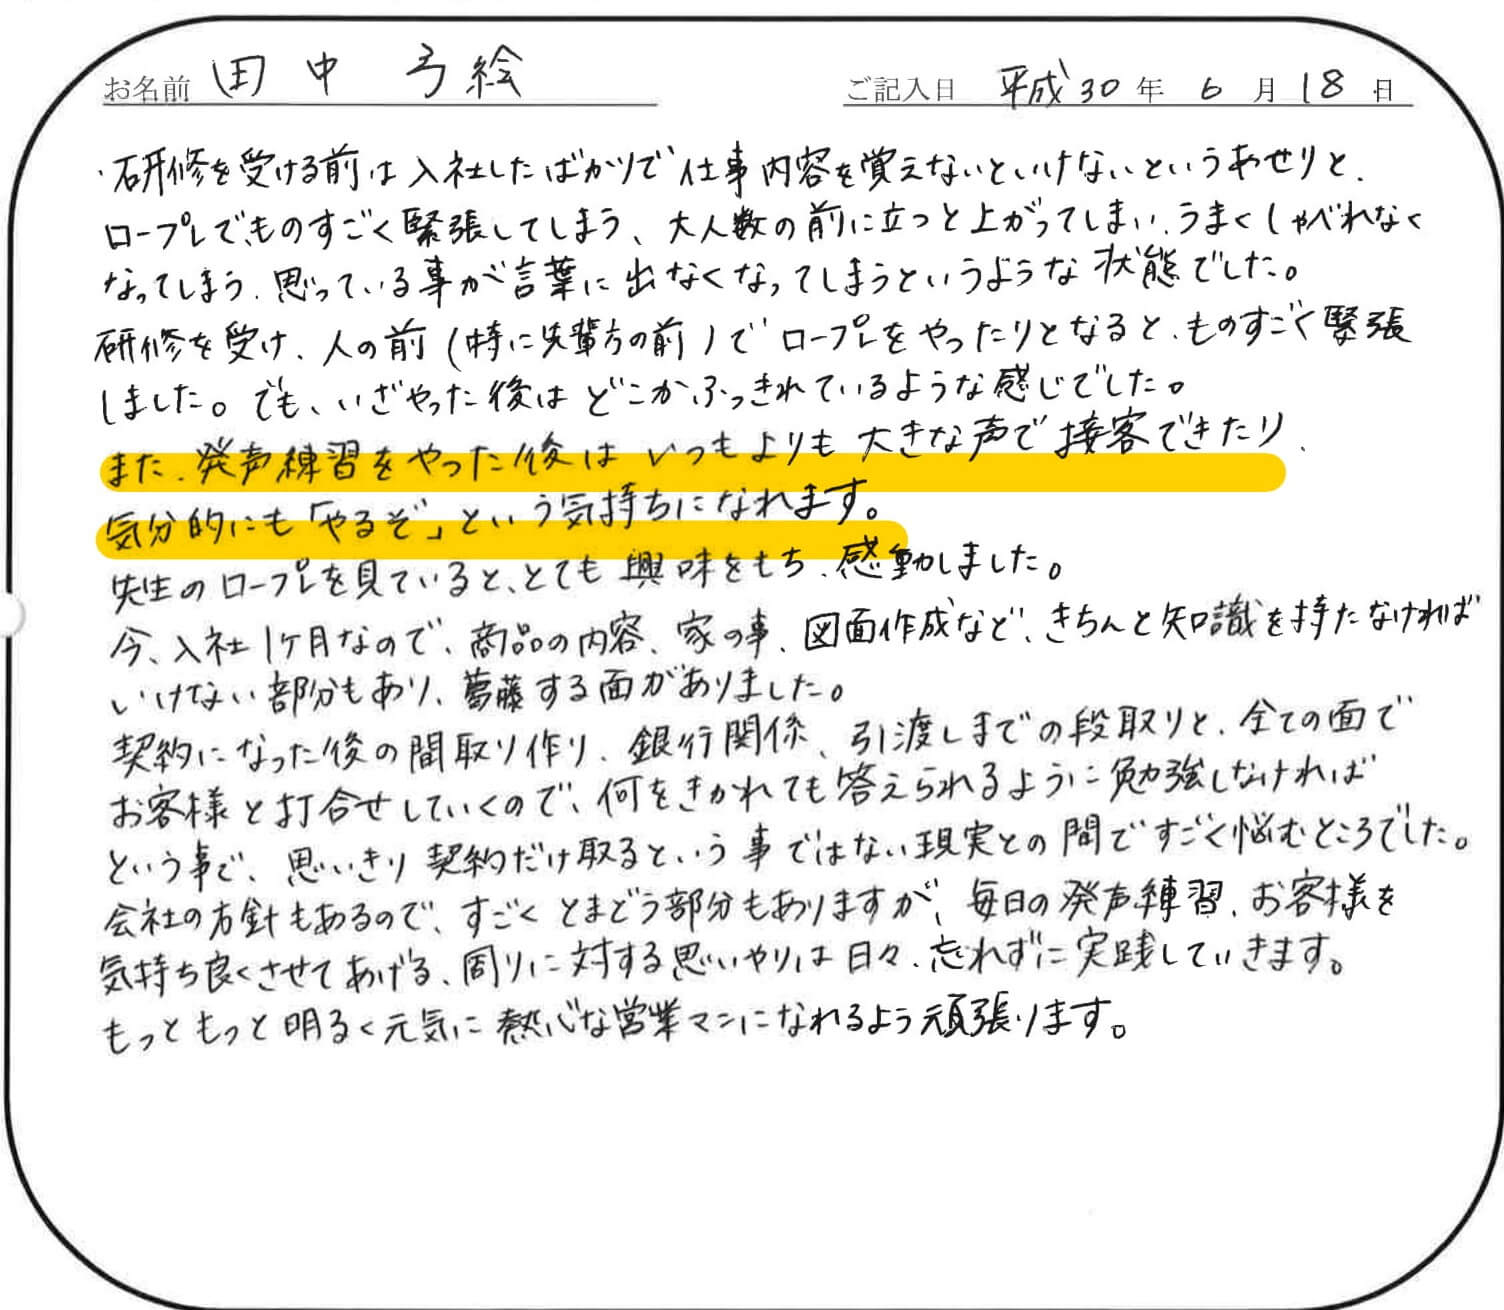 お名前 田中 弓絵
ご記入日 平成30年6月18日
・研修を受ける前は入社したばかりで仕事内容を覚えないといけないというあせりと、
ロープレでものすごく緊張してしまう、大人数の前に立つと上がってしまい、うまくしゃべれなく
なってしまう、思っている事が言葉に出なくなってしまうというような状態でした。
研修を受け、人の前(特に先輩方の前)でロープレをやったりとなると、ものすごく緊張
しました。でも、いざやった後はどこかふっきれているような感じでした。
また、発声練習をやった後はいつもよりも大きな声で接客できたり、
気分的にも「やるぞ」という気持ちになれます。
先生のロープレを見ていると、とても興味をもち、感動しました。
今、入社1ケ月なので、商品の内容、家の事、図面作成など、きちんと知識を持たなければ
いけない部分もあり、葛藤する面がありました。
契約になった後の間取り作り、銀行関係、引渡しまでの段取りと、全ての面で
お客様と打合せしていくので、何をきかれても答えられるように勉強しなければ
という事で、思いきり契約だけ取るという事ではない現実との間ですごく悩むところでした。
会社の方針もあるので、すごくとまどう部分もありますが、毎日の発声練習、お客様を
気持ち良くさせてあげる、周りに対する思いやりは日々、忘れずに実践していきます。
もっともっと明るく元気に熱心な営業マンになれるよう頑張ります。